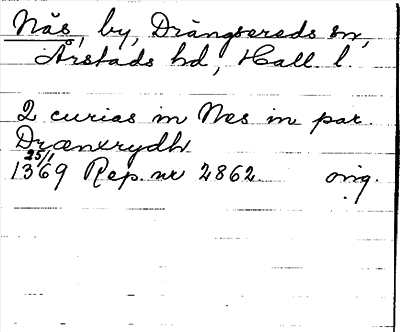 Näs, by, Drängsereds sn,
Årstads hd, Hall. l.
2 curias in Næs in par.
Drænxrydh
25/1
1369 Rep. nr 2862. orig.